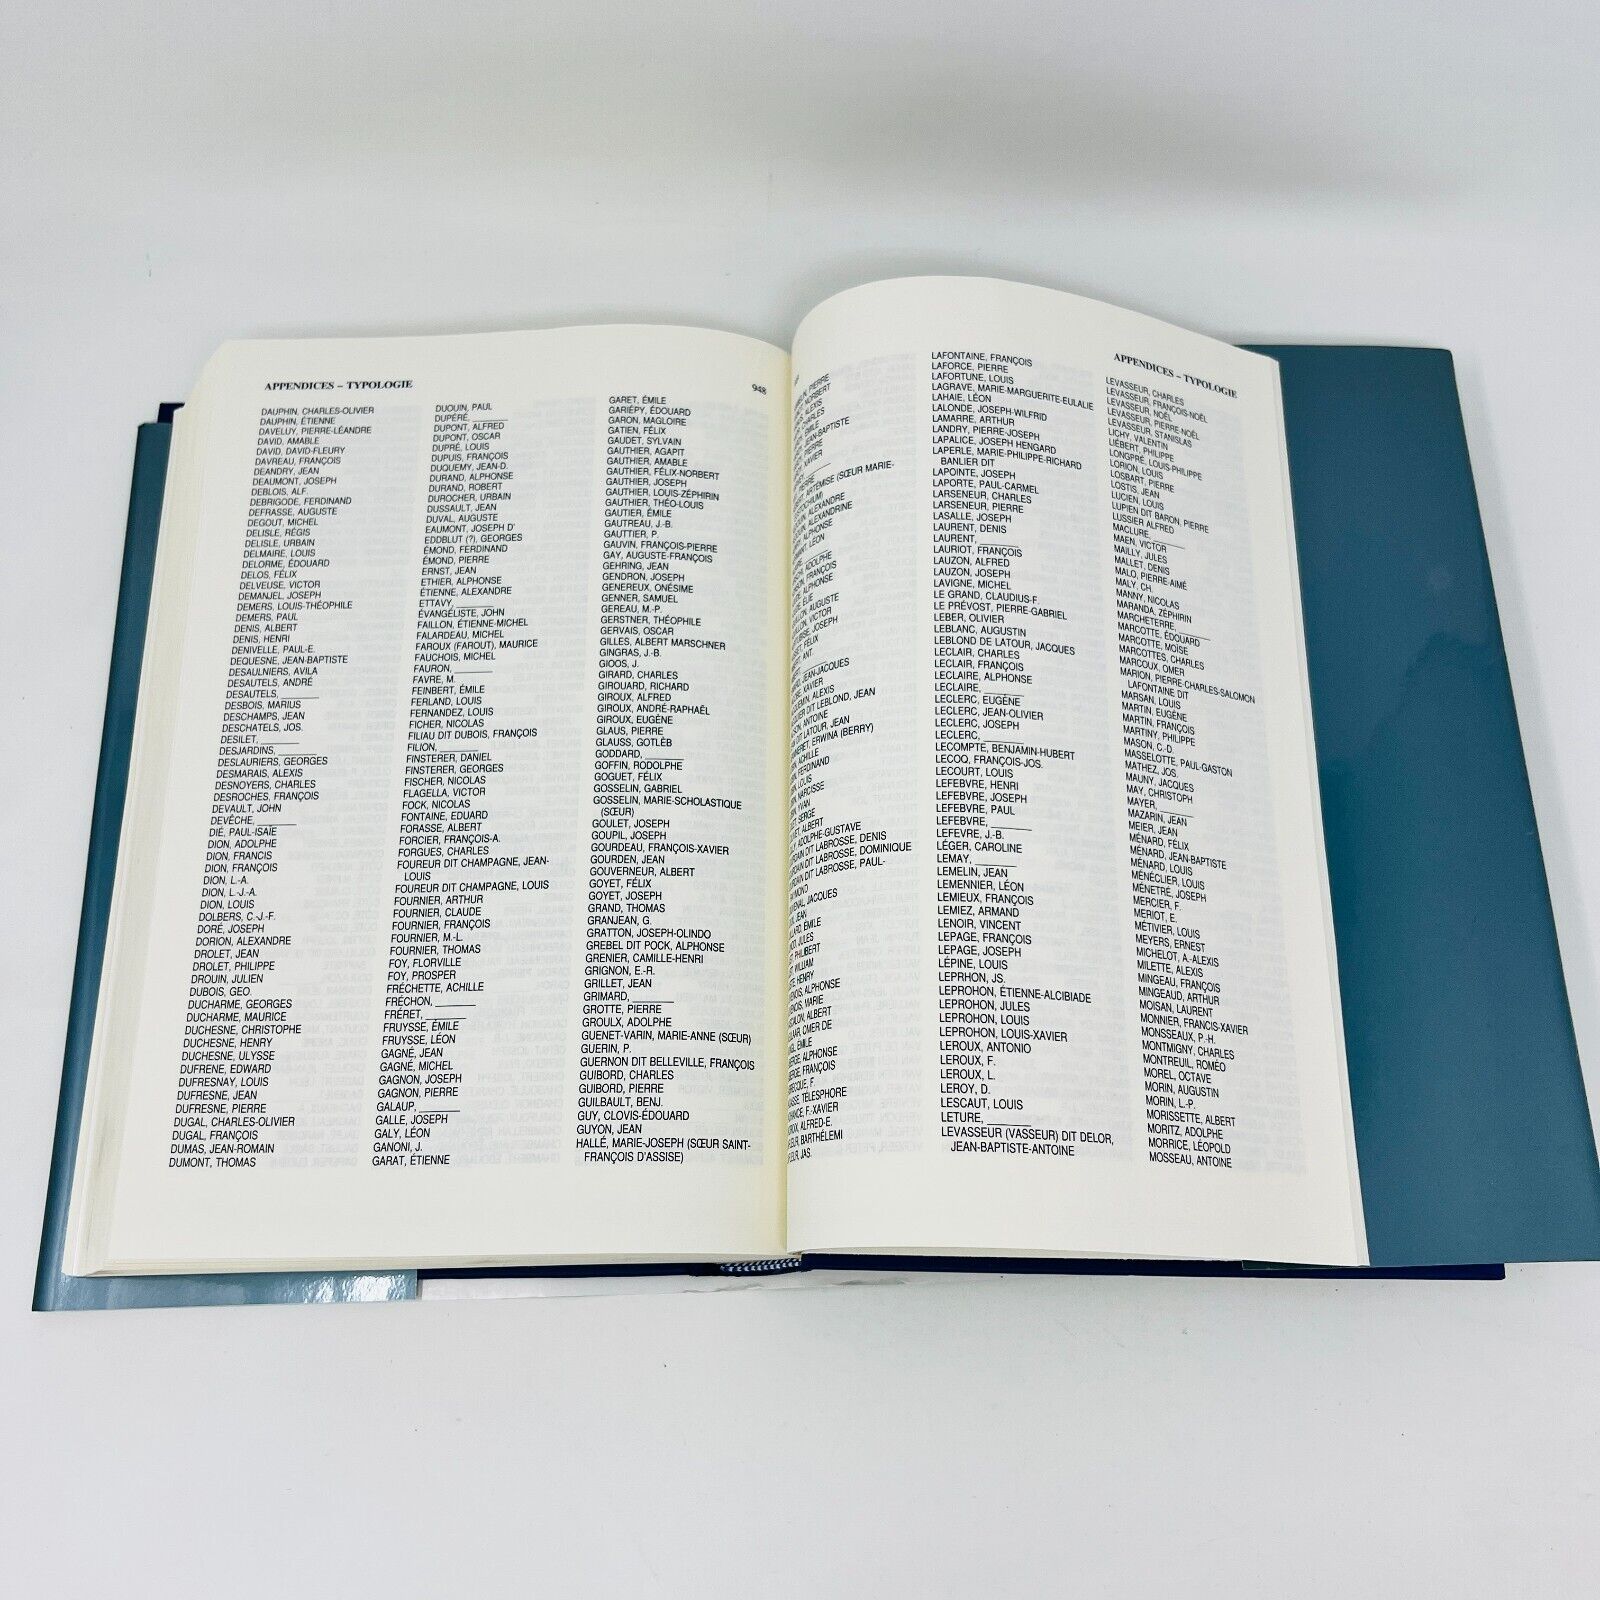 APPENDICES – TYPOLOGIE
948
DAUPHIN, CHARLES-OLIVIER
DAUPHIN, ÉTIENNE
DAVELUY, PIERRE-LÉANDRE
DAVID, AMABLE
DAVID, DAVID-FLEURY
DAVREAU, FRANÇOIS
DEANDRY, JEAN
DEAUMONT, JOSEPH
DEBLOIS, ALF.
DEBRIGODE, FERDINAND
DEFRASSE, AUGUSTE
DEGOUT, MICHEL
DELISLE, RÉGIS
DELISLE, URBAIN
DELMAIRE, LOUIS
DELORME, ÉDOUARD
DELOS, FÉLIX
DELVEUSE, VICTOR
DEMANJEL, JOSEPH
DEMERS, LOUIS-THÉOPHILE
DEMERS, PAUL
DENIS, ALBERT
DENIS, HENRI
DENIVELLE, PAUL-E.
DEQUESNE, JEAN-BAPTISTE
DESAULNIERS, AVILA
DESAUTELS, ANDRÉ
DESAUTELS, ________
DESBOIS, MARIUS
DESCHAMPS, JEAN
DESCHATELS, JOS.
DESILET, ________
DESJARDINS, ________
DESLAURIERS, GEORGES
DESMARAIS, ALEXIS
DESNOYERS, CHARLES
DESROCHES, FRANÇOIS
DEVAULT, JOHN
DEVÊCHE, ________
DIÉ, PAUL-ISAÏE
DION, ADOLPHE
DION, FRANCIS
DION, FRANÇOIS
DION, L.-A.
DION, L.-J.-A.
DION, LOUIS
DOLBERS, C.-J.-F.
DORÉ, JOSEPH
DORION, ALEXANDRE
DROLET, JEAN
DROLET, PHILIPPE
DROUIN, JULIEN
DUBOIS, GEO.
DUCHARME, GEORGES
DUCHARME, MAURICE
DUCHESNE, CHRISTOPHE
DUCHESNE, HENRY
DUCHESNE, ULYSSE
DUFRENE, EDWARD
DUFRESNAY, LOUIS
DUFRESNE, JEAN
DUFRESNE, PIERRE
DUGAL, CHARLES-OLIVIER
DUGAL, FRANÇOIS
DUMAS, JEAN-ROMAIN
DUMONT, THOMAS
DUOUIN, PAUL
DUPÉRÉ, ________
DUPONT, ALFRED
DUPONT, OSCAR
DUPRÉ, LOUIS
DUPUIS, FRANÇOIS
DUQUEMY, JEAN-D.
DURAND, ALPHONSE
DURAND, ROBERT
DUROCHER, URBAIN
DUSSAULT, JEAN
DUVAL, AUGUSTE
EAUMONT, JOSEPH D'
EDDBLUT (?), GEORGES
ÉMOND, FERDINAND
ÉMOND, PIERRE
ERNST, JEAN
ETHIER, ALPHONSE
ÉTIENNE, ALEXANDRE
ETTAVY, ________
ÉVANGÉLISTE, JOHN
FAILLON, ÉTIENNE-MICHEL
FALARDEAU, MICHEL
FAROUX (FAROUT), MAURICE
FAUCHOIS, MICHEL
FAURON, ________
FAVRE, M.
FEINBERT, ÉMILE
FERLAND, LOUIS
FERNANDEZ, LOUIS
FICHER, NICOLAS
FILIAU DIT DUBOIS, FRANÇOIS
FILION, ________
FINSTERER, DANIEL
FINSTERER, GEORGES
FISCHER, NICOLAS
FLAGELLA, VICTOR
FOCK, NICOLAS
FONTAINE, EDUARD
FORASSE, ALBERT
FORCIER, FRANÇOIS-A.
FORGUES, CHARLES
FOUREUR DIT CHAMPAGNE, JEAN-
LOUIS
FOUREUR DIT CHAMPAGNE, LOUIS
FOURNIER, ARTHUR
FOURNIER, CLAUDE
FOURNIER, FRANÇOIS
FOURNIER, M.-L.
FOURNIER, THOMAS
FOY, FLORVILLE
FOY, PROSPER
FRÉCHETTE, ACHILLE
FRÉCHON, ________
FRÉRET, ________
FRUYSSE, ÉMILE
FRUYSSE, LÉON
GAGNÉ, JEAN
GAGNÉ, MICHEL
GAGNON, JOSEPH
GAGNON, PIERRE
GALAUP, ________
GALLE, JOSEPH
GALY, LÉON
GANONI, J.
GARAT, ÉTIENNE
GARET, ÉMILE
GARIÉPY, ÉDOUARD
GARON, MAGLOIRE
GATIEN, FÉLIX
GAUDET, SYLVAIN
GAUTHIER, AGAPIT
GAUTHIER, AMABLE
GAUTHIER, FÉLIX-NORBERT
GAUTHIER, JOSEPH
GAUTHIER, LOUIS-ZÉPHIRIN
GAUTHIER, THÉO-LOUIS
GAUTIER, ÉMILE
GAUTREAU, J.-B.
GAUTTIER, P.
GAUVIN, FRANÇOIS-PIERRE
GAY, AUGUSTE-FRANÇOIS
GEHRING, JEAN
GENDRON, JOSEPH
GENEREUX, ONÉSIME
GENNER, SAMUEL
GEREAU, M.-P.
GERSTNER, THÉOPHILE
GERVAIS, OSCAR
GILLES, ALBERT MARSCHNER
GINGRAS, J.-B.
GIOOS, J.
GIRARD, CHARLES
GIROUARD, RICHARD
GIROUX, ALFRED
GIROUX, ANDRÉ-RAPHAËL
GIROUX, EUGÈNE
GLAUS, PIERRE
GLAUSS, GOTLËB
GODDARD, ________
GOFFIN, RODOLPHE
GOGUET, FÉLIX
GOSSELIN, GABRIEL
GOSSELIN, MARIE-SCHOLASTIQUE
(SŒUR)
GOULET, JOSEPH
GOUPIL, JOSEPH
GOURDEAU, FRANÇOIS-XAVIER
GOURDEN, JEAN
GOUVERNEUR, ALBERT
GOYET, FÉLIX
GOYET, JOSEPH
GRAND, THOMAS
GRANJEAN, G.
GRATTON, JOSEPH-OLINDO
GREBEL DIT POCK, ALPHONSE
GRENIER, CAMILLE-HENRI
GRIGNON, E.-R.
GRILLET, JEAN
GRIMARD, ________
GROTTE, PIERRE
GROULX, ADOLPHE
GUENET-VARIN, MARIE-ANNE (SŒUR)
GUERIN, P.
GUERNON DIT BELLEVILLE, FRANÇOIS
GUIBORD, CHARLES
GUIBORD, PIERRE
GUILBAULT, BENJ.
GUY, CLOVIS-ÉDOUARD
GUYON, JEAN
HALLÉ, MARIE-JOSEPH (SŒUR SAINT-
FRANÇOIS D'ASSISE)
APPENDICES – TYPOLOGIE
PIERRE
NORBERT
ALEXIS
CHARLES
ÉMILE
JEAN-BAPTISTE
PIERRE
XAVIER
PIERRE
ARTÉMISE (SŒUR MARIE-
ALEXANDRE
ALEXANDRINE
ALPHONSE
LÉON
ADOLPHE
FRANÇOIS
ALPHONSE
ÉLIE
AUGUSTE
VICTOR
JOSEPH
FÉLIX
ANT.
JEAN-JACQUES
XAVIER
ALEXIS
DIT LEBLOND, JEAN
ANTOINE
DIT LATOUR, JEAN
ERWINA (BERRY)
ACHILLE
FERDINAND
LOUIS
NARCISSE
YVAN
SERGE
ALBERT
ADOLPHE-GUSTAVE
DIT LABROSSE, DENIS
DIT LABROSSE, DOMINIQUE
DIT LABROSSE, PAUL-
JACQUES
JEAN
ÉMILE
JULES
PHILIBERT
WILLIAM
HENRY
ALPHONSE
MARIE
ALBERT
OMER DE
ÉMILE
ALPHONSE
FRANÇOIS
F.
TÉLESPHORE
F.-XAVIER
ALFRED-E.
BARTHÉLEMI
JAS.
LAFONTAINE, FRANÇOIS
LAFORCE, PIERRE
LAFORTUNE, LOUIS
LAGRAVE, MARIE-MARGUERITE-EULALIE
LAHAIE, LÉON
LALONDE, JOSEPH-WILFRID
LAMARRE, ARTHUR
LANDRY, PIERRE-JOSEPH
LAPALICE, JOSEPH HENGARD
LAPERLE, MARIE-PHILIPPE-RICHARD
BANLIER DIT
LAPOINTE, JOSEPH
LAPORTE, PAUL-CARMEL
LARSENEUR, CHARLES
LARSENEUR, PIERRE
LASALLE, JOSEPH
LAURENT, DENIS
LAURENT, ________
LAURIOT, FRANÇOIS
LAUZON, ALFRED
LAUZON, JOSEPH
LAVIGNE, MICHEL
LE GRAND, CLAUDIUS-F.
LE PRÉVOST, PIERRE-GABRIEL
LEBER, OLIVIER
LEBLANC, AUGUSTIN
LEBLOND DE LATOUR, JACQUES
LECLAIR, CHARLES
LECLAIR, FRANÇOIS
LECLAIRE, ALPHONSE
LECLAIRE, ________
LECLERC, EUGÈNE
LECLERC, JEAN-OLIVIER
LECLERC, JOSEPH
LECLERC, ________
LECOMPTE, BENJAMIN-HUBERT
LECOQ, FRANÇOIS-JOS.
LECOURT, LOUIS
LEFEBVRE, HENRI
LEFEBVRE, JOSEPH
LEFEBVRE, PAUL
LEFEBVRE, ________
LEFEVRE, J.-B.
LÉGER, CAROLINE
LEMAY, ________
LEMELIN, JEAN
LEMENNIER, LÉON
LEMIEUX, FRANÇOIS
LEMIEZ, ARMAND
LENOIR, VINCENT
LEPAGE, FRANÇOIS
LEPAGE, JOSEPH
LÉPINE, LOUIS
LEPRHON, JS.
LEPROHON, ÉTIENNE-ALCIBIADE
LEPROHON, JULES
LEPROHON, LOUIS
LEPROHON, LOUIS-XAVIER
LEROUX, ANTONIO
LEROUX, F.
LEROUX, L.
LEROY, D.
LESCAUT, LOUIS
LETURE, ________
LEVASSEUR (VASSEUR) DIT DELOR,
JEAN-BAPTISTE-ANTOINE
LEVASSEUR, CHARLES
LEVASSEUR, FRANÇOIS-NOËL
LEVASSEUR, NOËL
LEVASSEUR, PIERRE-NOËL
LEVASSEUR, STANISLAS
LICHY, VALENTIN
LIÉBERT, PHILIPPE
LONGPRÉ, LOUIS-PHILIPPE
LORION, LOUIS
LOSBART, PIERRE
LOSTIS, JEAN
LUCIEN, LOUIS
LUPIEN DIT BARON, PIERRE
LUSSIER ALFRED
MACLURE, ________
MAEN, VICTOR
MAILLY, JULES
MALLET, DENIS
MALO, PIERRE-AIMÉ
MALY, CH.
MANNY, NICOLAS
MARANDA, ZÉPHIRIN
MARCHETERRE, ________
MARCOTTE, ÉDOUARD
MARCOTTE, MOÏSE
MARCOTTES, CHARLES
MARCOUX, OMER
MARION, PIERRE-CHARLES-SALOMON
LAFONTAINE DIT
MARSAN, LOUIS
MARTIN, EUGÈNE
MARTIN, FRANÇOIS
MARTINY, PHILIPPE
MASON, C.-D.
MASSELOTTE, PAUL-GASTON
MATHEZ, JOS.
MAUNY, JACQUES
MAY, CHRISTOPH
MAYER, ________
MAZARIN, JEAN
MEIER, JEAN
MÉNARD, FÉLIX
MÉNARD, JEAN-BAPTISTE
MÉNARD, LOUIS
MÉNÉCLIER, LOUIS
MÉNETRÉ, JOSEPH
MERCIER, F.
MERIOT, E.
MÉTIVIER, LOUIS
MEYERS, ERNEST
MICHELOT, A.-ALEXIS
MILETTE, ALEXIS
MINGEAU, FRANÇOIS
MINGEAUD, ARTHUR
MOISAN, LAURENT
MONNIER, FRANCIS-XAVIER
MONSSEAUX, P.-H.
MONTMIGNY, CHARLES
MONTREUIL, ROMÉO
MOREL, OCTAVE
MORIN, AUGUSTIN
MORIN, L.-P.
MORISSETTE, ALBERT
MORITZ, ADOLPHE
MORRICE, LÉOPOLD
MOSSEAU, ANTOINE